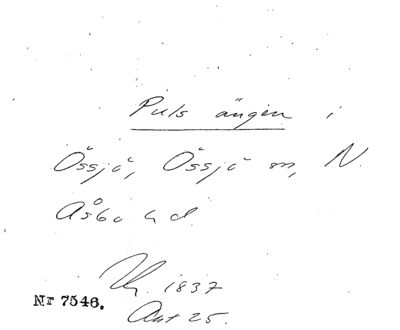 Puls ängen i
Össjö, Össjö sn, N.
Åsbo hd.
1837
Nr 7546.
Akt 25.